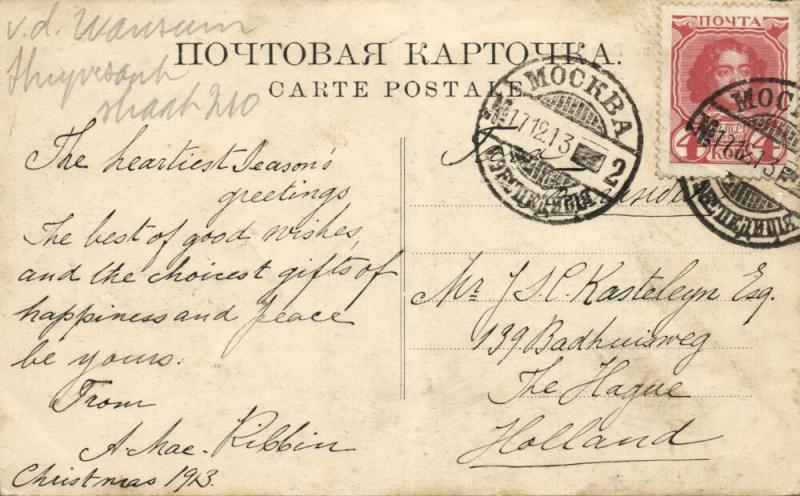 v.d.
straat 210
ПОЧТОВАЯ КАРТОЧКА.
CARTE POSTALE
ПОЧТА
4 КОП 4
МОСКВА
17.12.13
2
ЭКСПЕДИЦІЯ
МОСК
17.12.13
ЭКСПЕДИЦІЯ
The heartiest Season's
greetings
The best of good wishes,
and the choicest gifts of
happiness and peace
be yours.
From
A. Mac. Kibbin
Christmas 1913.
Mr J.S.C. Kasteleyn Esq.
139 Badhuisweg
The Hague
Holland